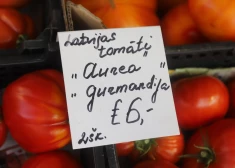 Latvijas
tomāti
"aurea"
"gurmandija
£6,-
2šk.